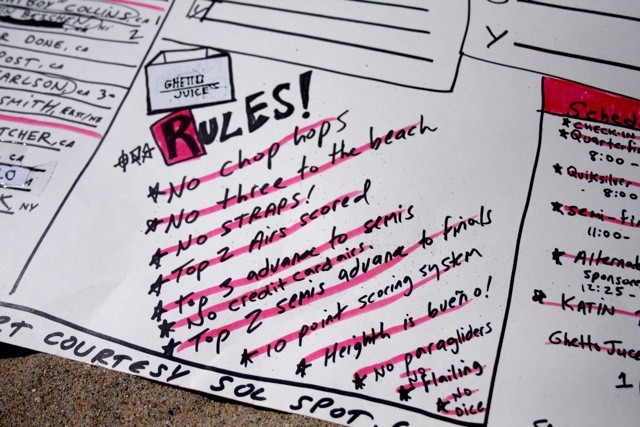 COLLINS, CA 1
2
R DONE, CA
POST, CA
CARLSON, CA 3
SMITH, EAST/NB
TCHER, CA
CA
NY
GHETTO
JUICE
RULES!
* No chop hops
* No three to the beach
* No STRAPS!
* Top 2 Airs scored
* Top 3 advance to semis
* No credit card airs.
* Top 2 semis advance to finals
* 10 point scoring system
* Heighth is bueño!
* No paragliders
* No flailing
* No Dice
Y
Sched
* CHECK-IN
* Quarterfin
8:00 -
* Quiksilver
8:00
* semi-fin
11:00-
* Alterna
Sponsore
12:25 -
* KATIN
Ghetto Juce
1
RT COURTESY SOL SPOT.C